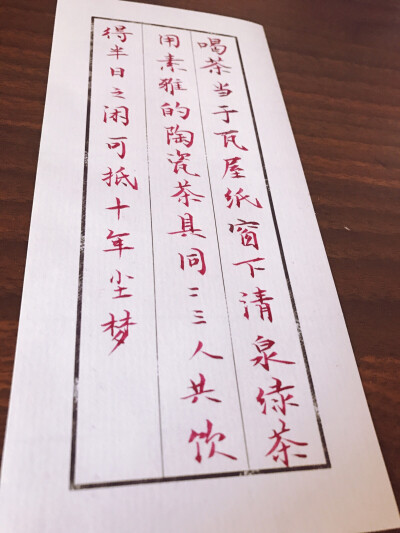 喝茶当于瓦屋纸窗下清泉绿茶
用素雅的陶瓷茶具同二三人共饮
得半日之闲可抵十年尘梦